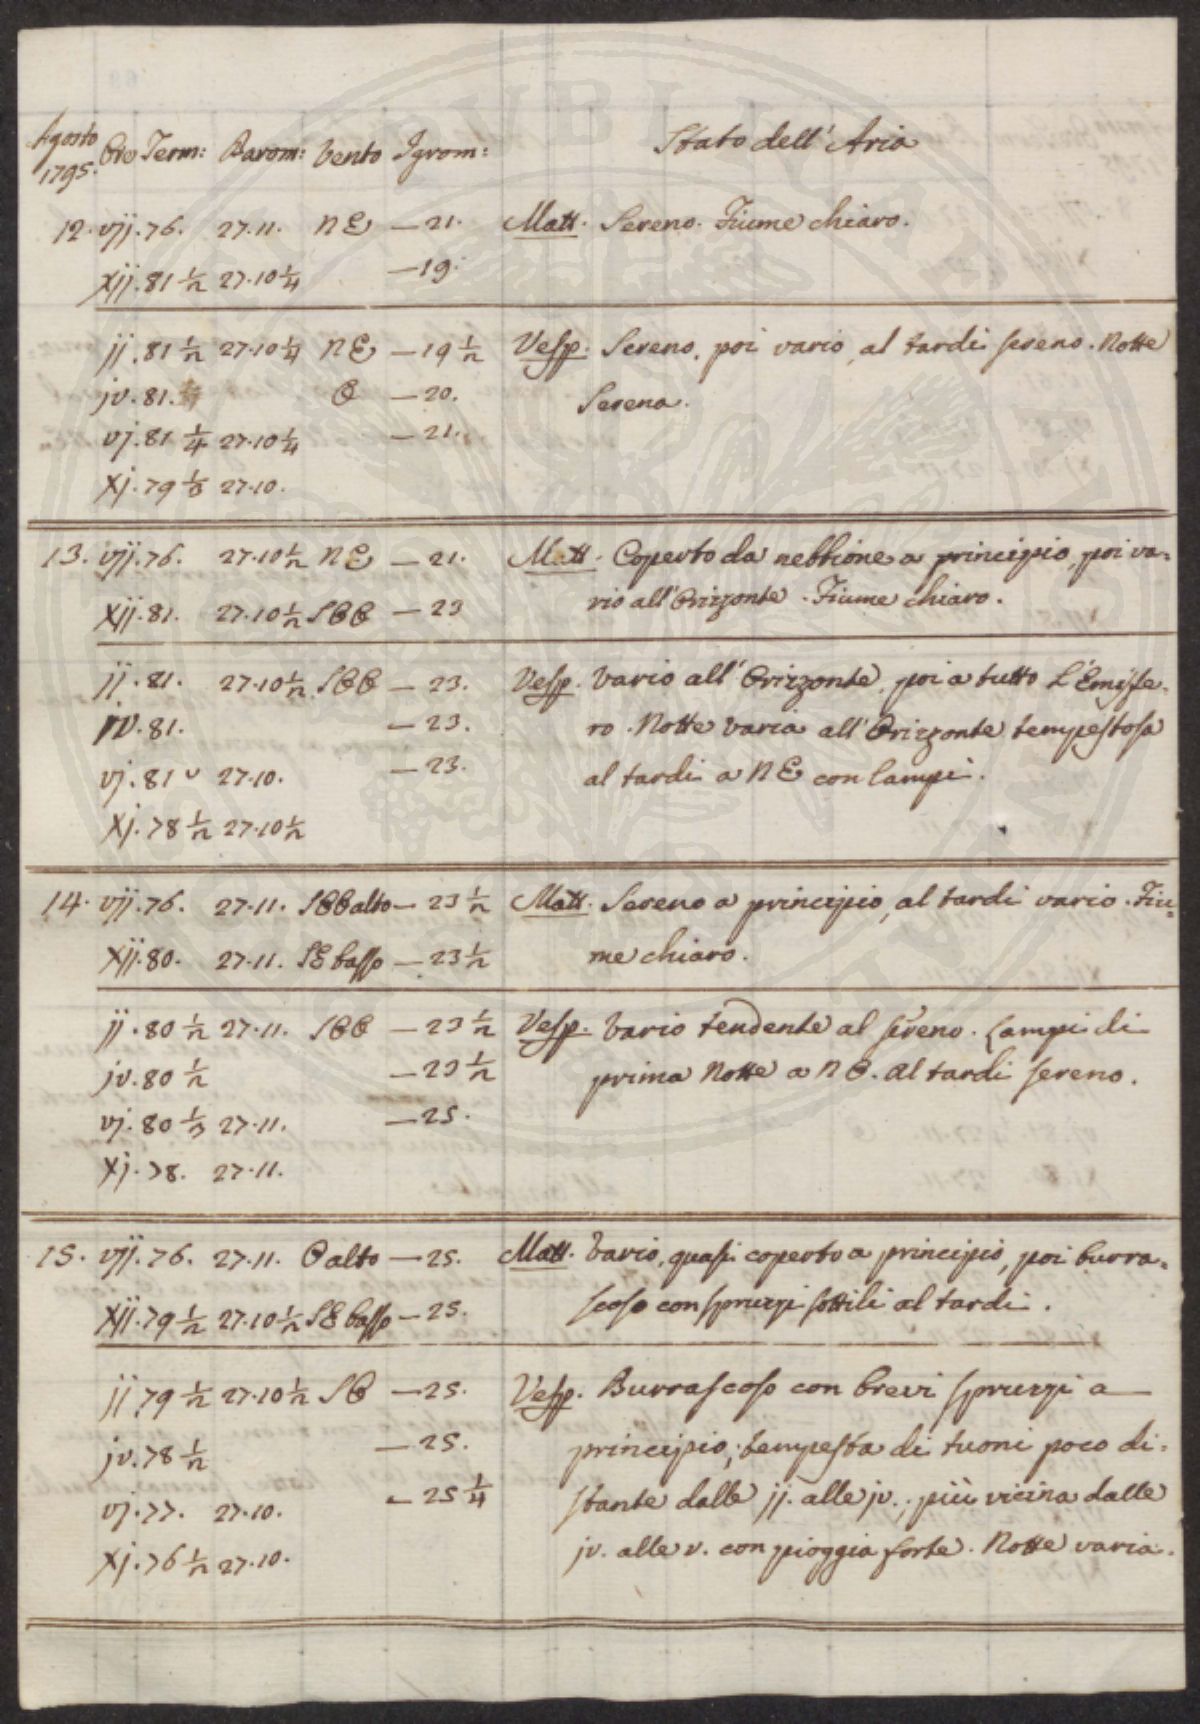 Agosto 1795. Ore Term: Barom: Vento Igrom: Stato dell' Aria
12. vij. 76. 27.11. NE — 21. Matt. Sereno. Fiume chiaro.
xij. 81 1/2 27.10 1/4 — 19.
ij. 81 1/2 27.10 1/4 NE — 19 1/2 Vesp. Sereno, poi vario, al tardi sereno. Notte
jv. 81. O — 20. Serena.
vj. 81 1/4 27.10 1/4 — 21.
xj. 79 1/3 27.10.
13. vij. 76. 27.10 1/2 NE — 21. Matt. Coperto da nebbione a principio, poi va-
xij. 81. 27.10 1/2 SOO — 23 rio all' Orizzonte. Fiume chiaro.
ij. 81. 27.10 1/2 SOO — 23. Vesp. Vario all' Orizzonte, poi a tutto L'Emisfe-
jv. 81. — 23. ro. Notte varia all' Orizzonte tempestosa
vj. 81 27.10. — 23. al tardi a NE con lampi.
xj. 78 1/2 27.10 1/2
14. vij. 76. 27.11. SOO alto — 23 1/2 Matt. Sereno a principio, al tardi vario. Fiu-
xij. 80. 27.11. SE basso — 23 1/2 me chiaro.
ij. 80 1/2 27.11. SOO — 23 1/2 Vesp. Vario tendente al sereno. Lampi di
jv. 80 1/2 — 23 1/2 prima Notte a NO. al tardi sereno.
vj. 80 1/3 27.11. — 25.
xj. 78. 27.11.
15. vij. 76. 27.11. O alto — 25. Matt. Vario, quasi coperto a principio, poi burra-
xij. 79 1/2 27.10 1/2 SE basso — 25. scoso con spruzzi sottili al tardi.
ij 79 1/2 27.10 1/2 SO — 25. Vesp. Burrascoso con brevi spruzzi a
jv. 78 1/2 — 25. principio; tempesta di tuoni poco di-
vj. 77. 27.10. — 25 1/4 stante dalle ij. alle jv.; più vicina dalle
xj. 76 1/2 27.10. jv. alle v. con pioggia forte. Notte varia.